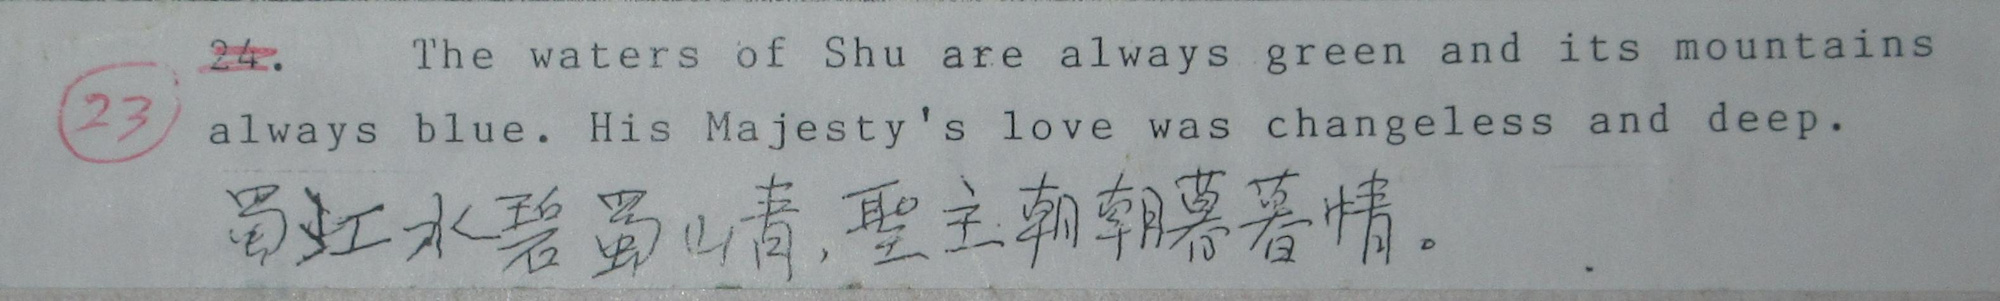 24. The waters of Shu are always green and its mountains
23 always blue. His Majesty's love was changeless and deep.
蜀江水碧蜀山青,聖主朝朝暮暮情。